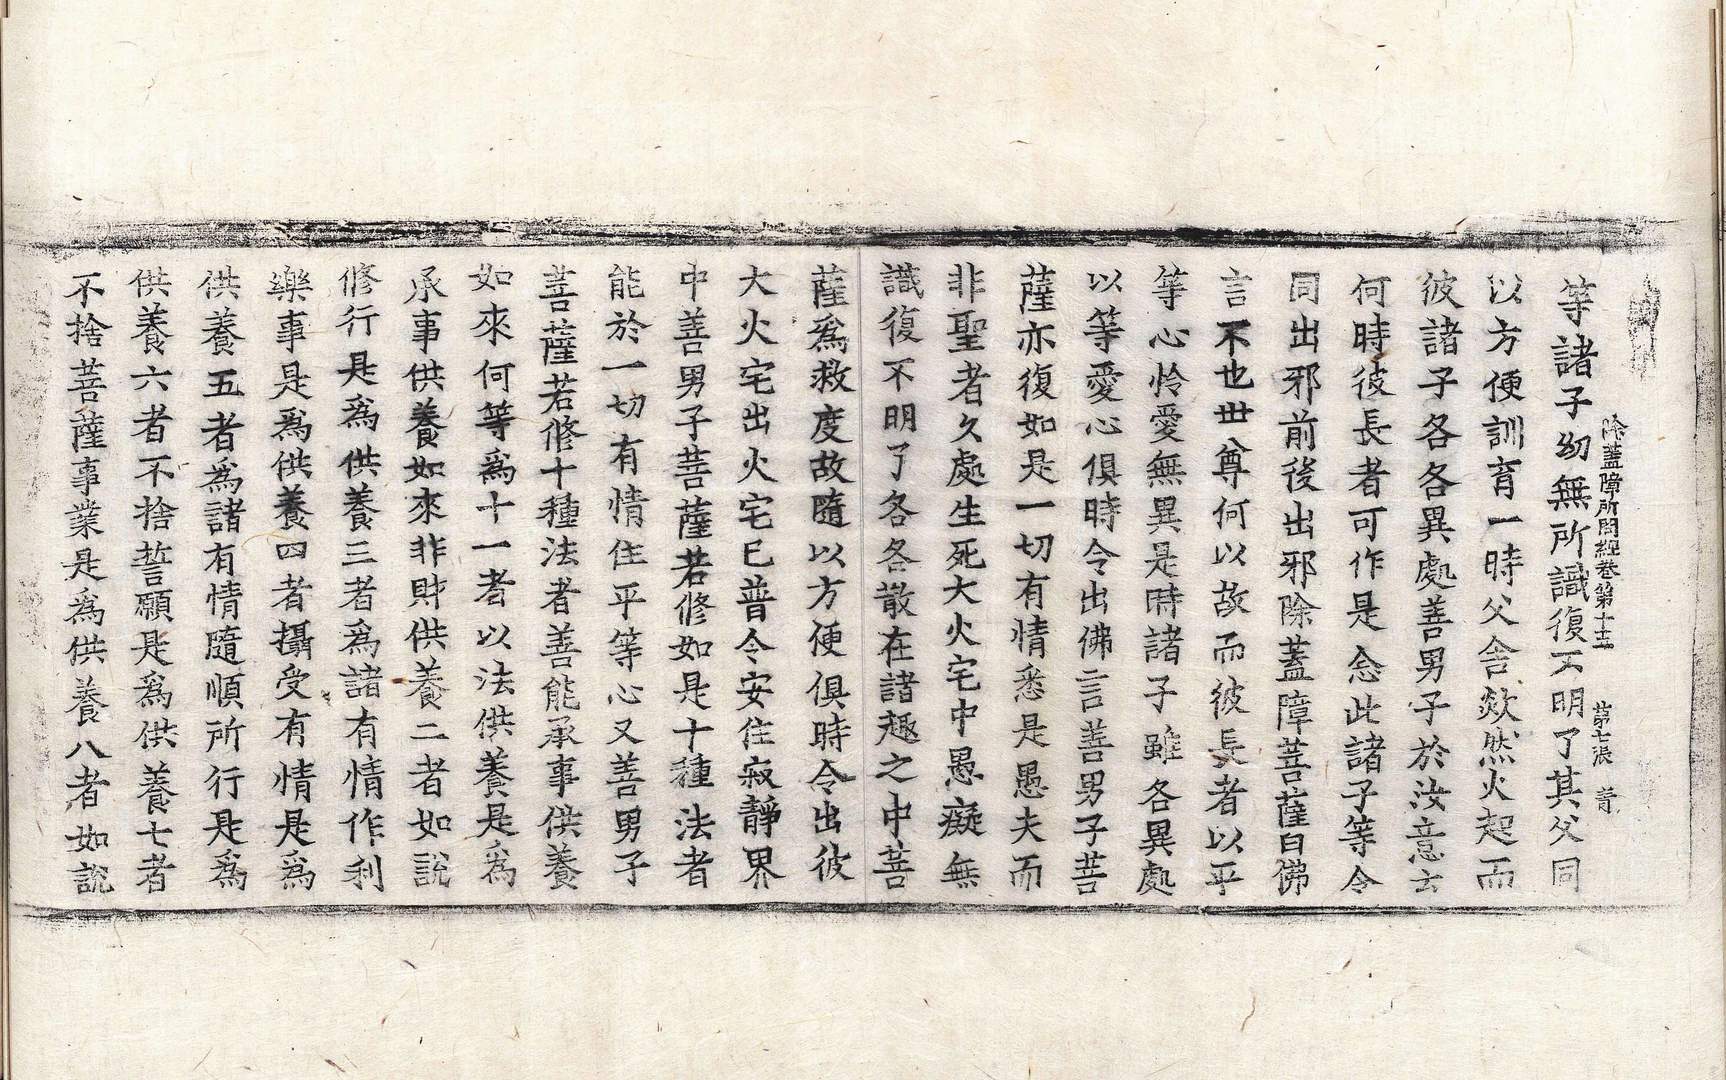 除蓋障所問經卷第十二 第七張 䒭
等諸子幼無所識復不明了其父同
以方便訓育一時父舍欻然火起而
彼諸子各各異處善男子於汝意云
何時彼長者可作是念此諸子等令
同出邪前後出邪除蓋障菩薩白佛
言不也世尊何以故而彼長者以平
等心怜愛無異是時諸子雖各異處
以等愛心俱時令出佛言善男子菩
薩亦復如是一切有情悉是愚夫而
非聖者久處生死大火宅中愚癡無
識復不明了各各散在諸趣之中菩
薩爲救度故隨以方便俱時令出彼
大火宅出火宅已普令安住寂靜界
中善男子菩薩若修如是十種法者
能於一切有情住平等心又善男子
菩薩若修十種法者善能承事供養
如來何等爲十一者以法供養是爲
承事供養如來非財供養二者如說
修行是爲供養三者爲諸有情作利
樂事是爲供養四者攝受有情是爲
供養五者爲諸有情隨順所行是爲
供養六者不捨誓願是爲供養七者
不捨菩薩事業是爲供養八者如說